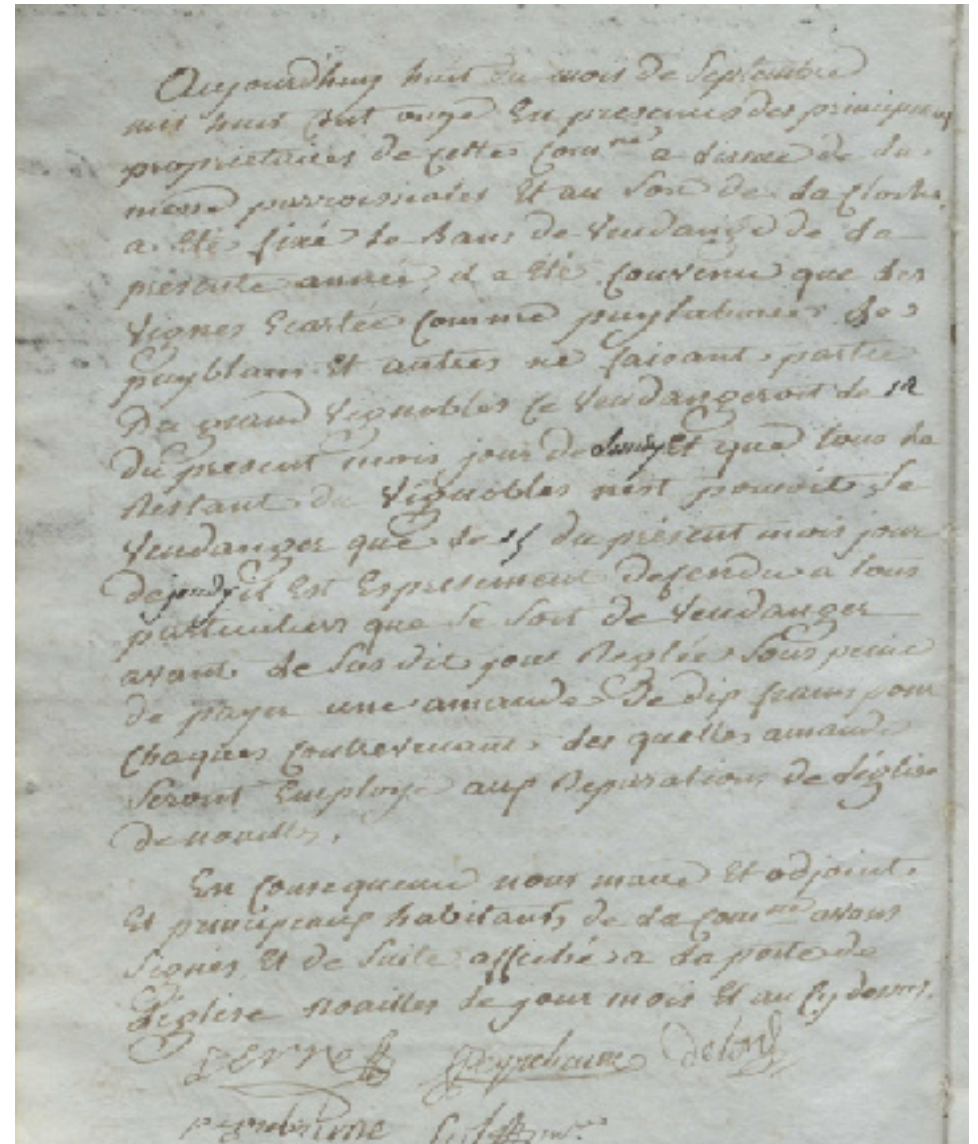 Aujourdhuy huit du mois de Septembre
mil huit Cent onze En presences des principeaux
proprietaires de cettes Com.ne a lissue de la
messe parroissiales Et au Son de la Cloche
a Eté fixé le Bans de Vendange de la
présente année, il a Eté Convenu que les
Vignes Ecartée Comme de
puyblanc Et autres ne faisant partie
Du grand Vignobles Ce Vendangeront le 12
Du present mois jour de lundy Et que tous le
Restant du Vignobles nest pouroit Se
Vendanger que le 15 du présent mois jour
de jeudy il Est Expressement defendu a tous
particuliers que Se Soit de Vendanger
avant le Sus dit jour Reglée Sous peine
de payer une amande De dix francs pour
Chaques Contrevenant, des quelles amande
Seront Employé aux Reparations de léglise
de noailles.
En Consequence nous maire Et adjoint
Et principeaux habitants de la Com.ne avons
Signés Et de Suite affiché a la porte de
L'église noailles le jour mois Et an